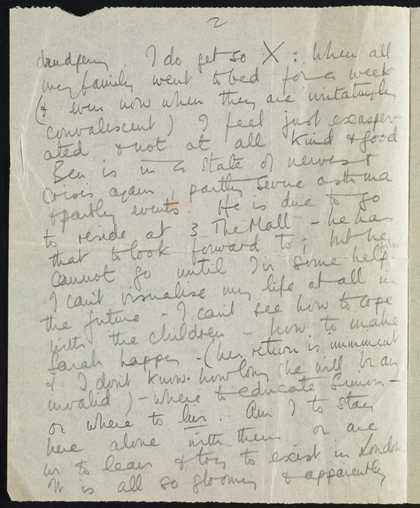 2
drudgery. I do get so X: When all
my family went to bed for a week
(& even now when they are irritatingly
convalescent) I feel just exasper-
ated & not at all kind & good
Ben is in a state of nervest
crisis again, partly severe asthma
& partly events. He is due to go
to reside at 3 The Mall - he has
that to look forward to; but he
cannot go until I've some help.
I can't visualise my life at all in
the future - I can't see how to cope
with the children - how to make
Sarah happy - (her return is imminent
& I don't know how long she will be an
invalid) - where to educate Simon -
or where to live. Am I to stay
here alone with them or are
we to leave & try to exist in London
It is all so gloomy & apparently